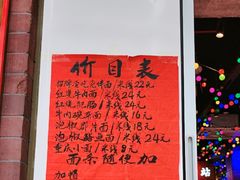 价目表
招牌金汤肥牛面/米线22元
红烧牛肉面/米线24元
红烧肥肠/米线24元
牛肉豌杂面/米线16元
泡椒鸡片面/米18元
泡椒鳝鱼面/米线24元
重庆小面/米线8元
面条随便加
加帽
站